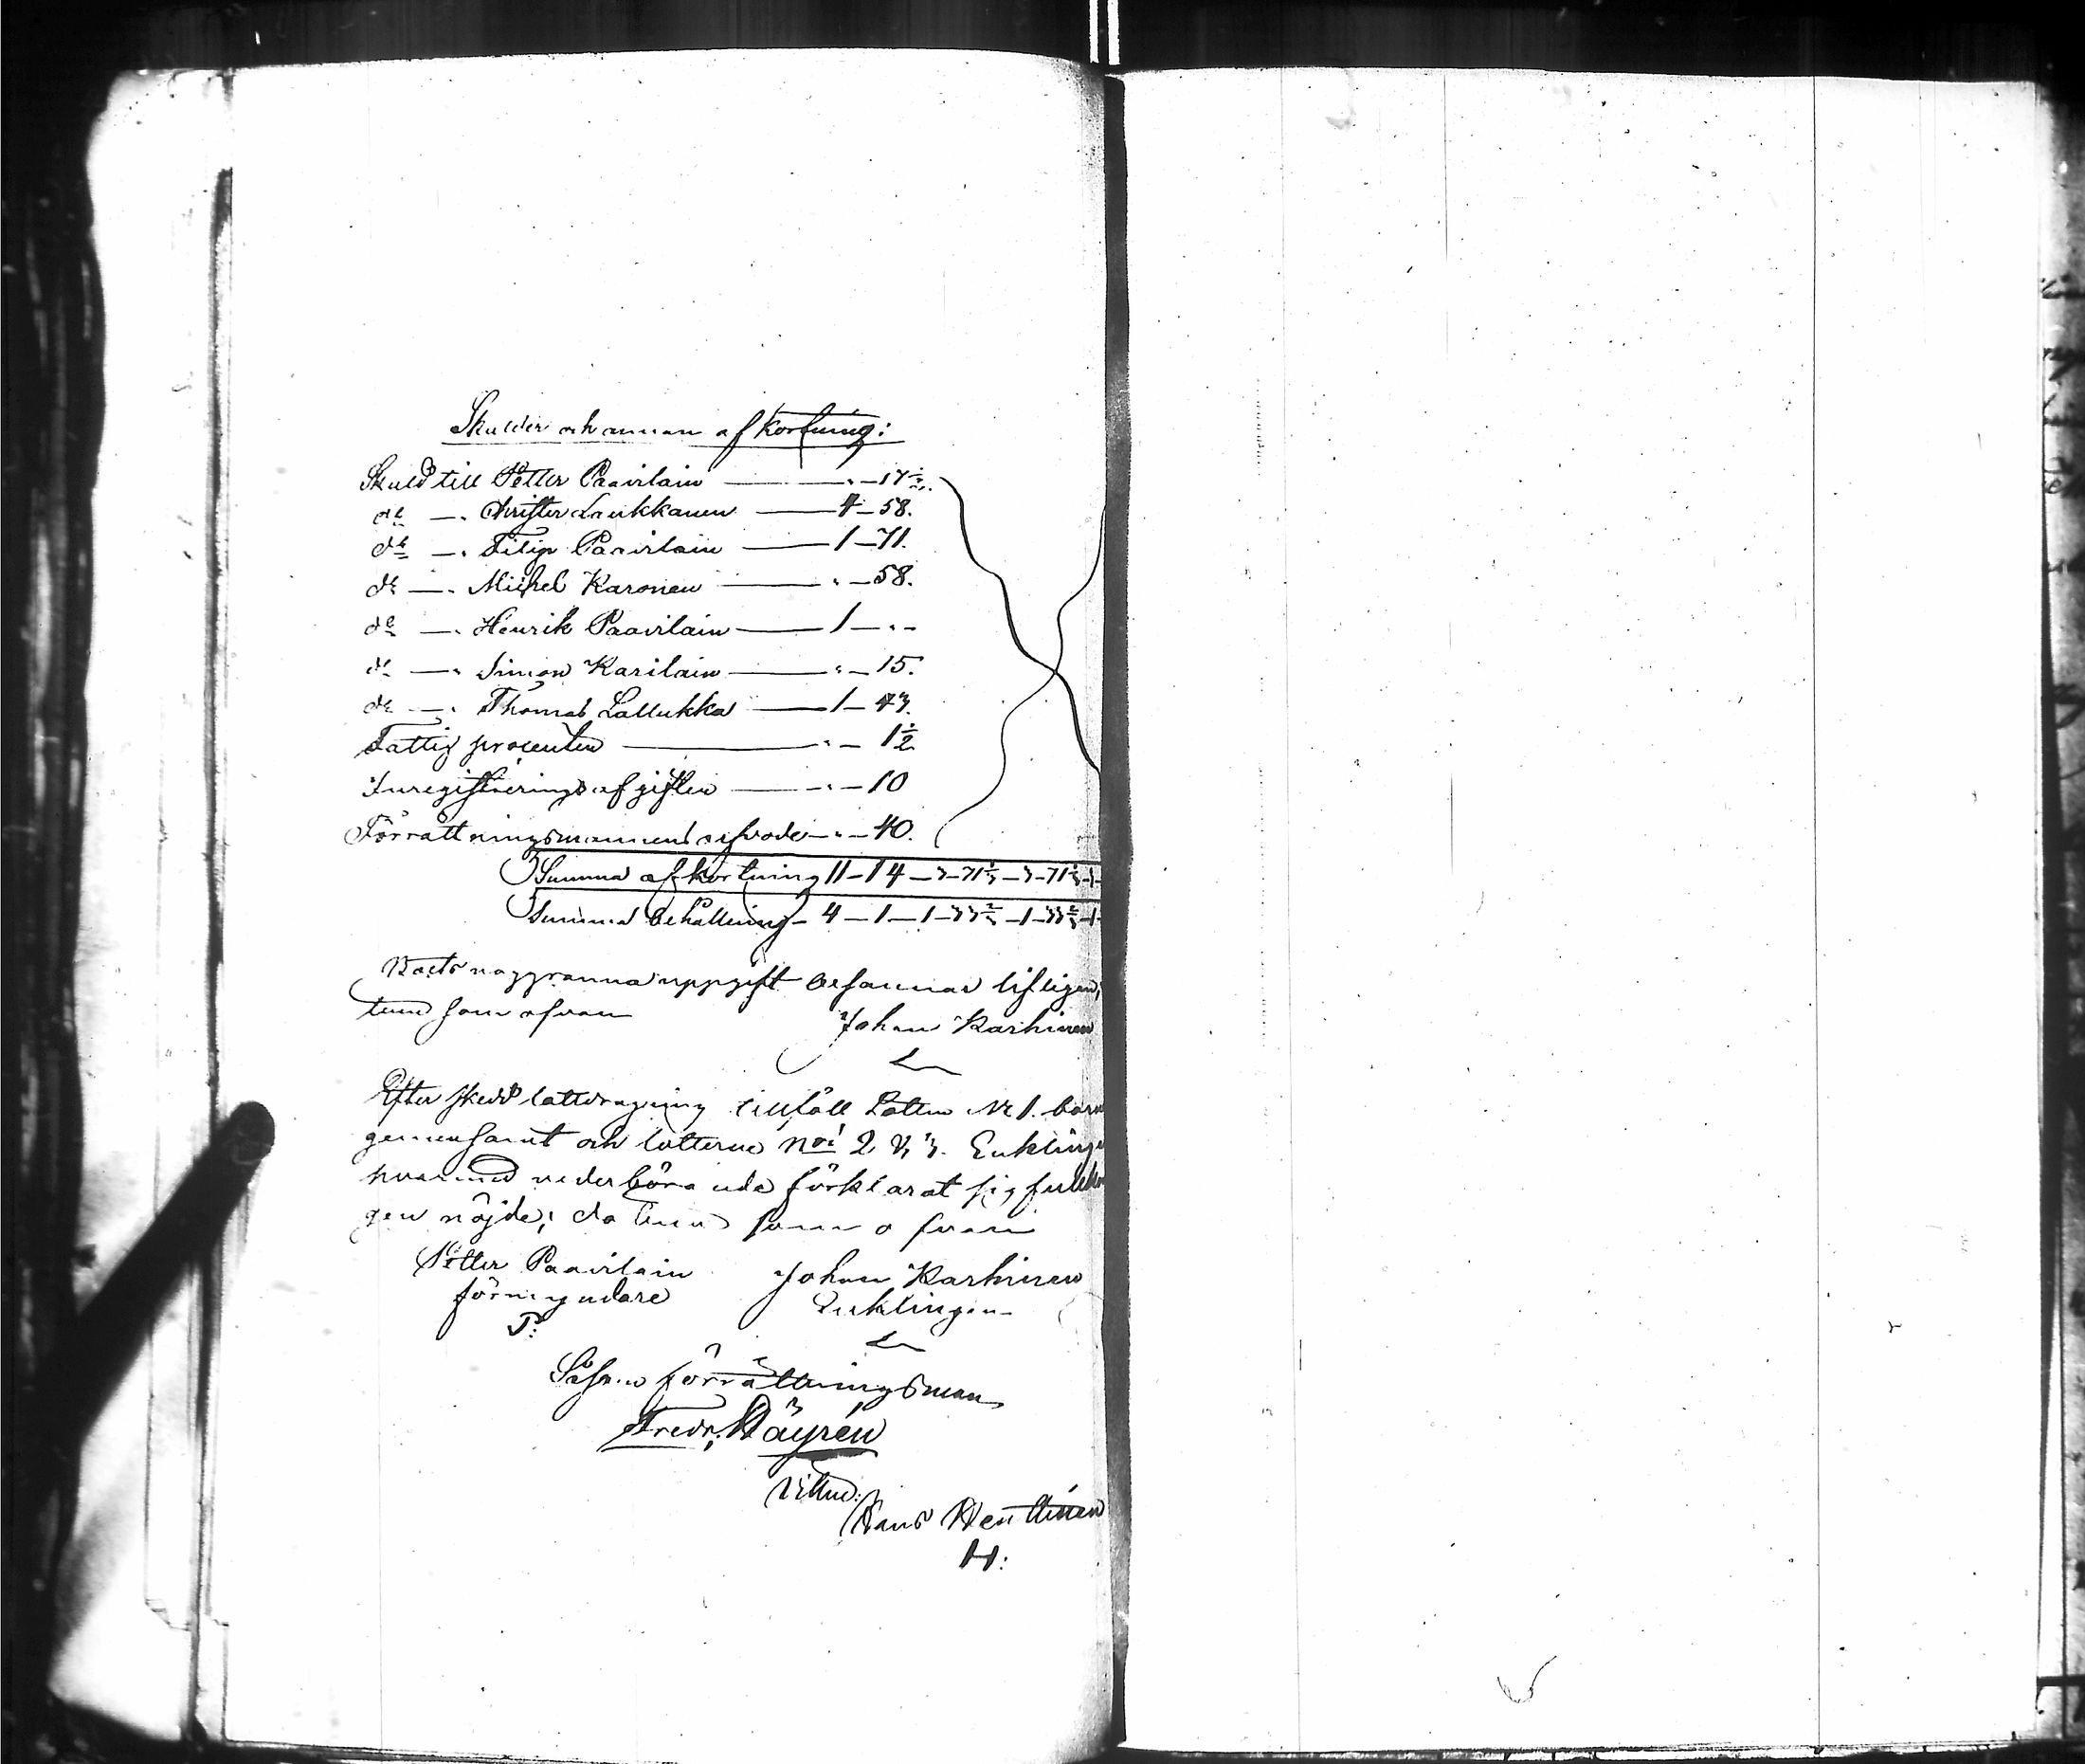 Skulder och annan afkortning:
Skuld till Petter Paavilain — " — 17½.
do — " Christer Laukkanen — 4 — 58.
do — " Filip Paavilain — 1 — 71.
do — " Michel Karonen — " — 58.
do — " Henrik Paavilain — 1 — " —
do — " Simon Karilain — " — 15.
do — " Thomas Lallukka — 1 — 43.
Fattig procenten — " — 1½
Inregistrerings afgiften — " — 10
Förrättningsmannens arfvode — " — 40.
Summa afkortning 11 — 14 — 3 — 71⅓ — 3 — 71⅓
Summa behållning — 4 — 1 — 1 — 33⅔ — 1 — 33⅔
noggranna uppgift besannas lifligen,
tum som ofvan Johan Karhinen
Efter skedd lottdragning tillföll Lotten No 1. barn
gemensamt och lotterne No: 2 & 3. Enklinge
hvarmed vederbörande förklarat sig fullko
gen nöjde; datum som ofvan
Petter Paavilain Johan Karhinen
förmyndare Enklingen
P:
förrättningsman
Fredr. Väyrén
Vittne:
Hans Wenttinen
H: